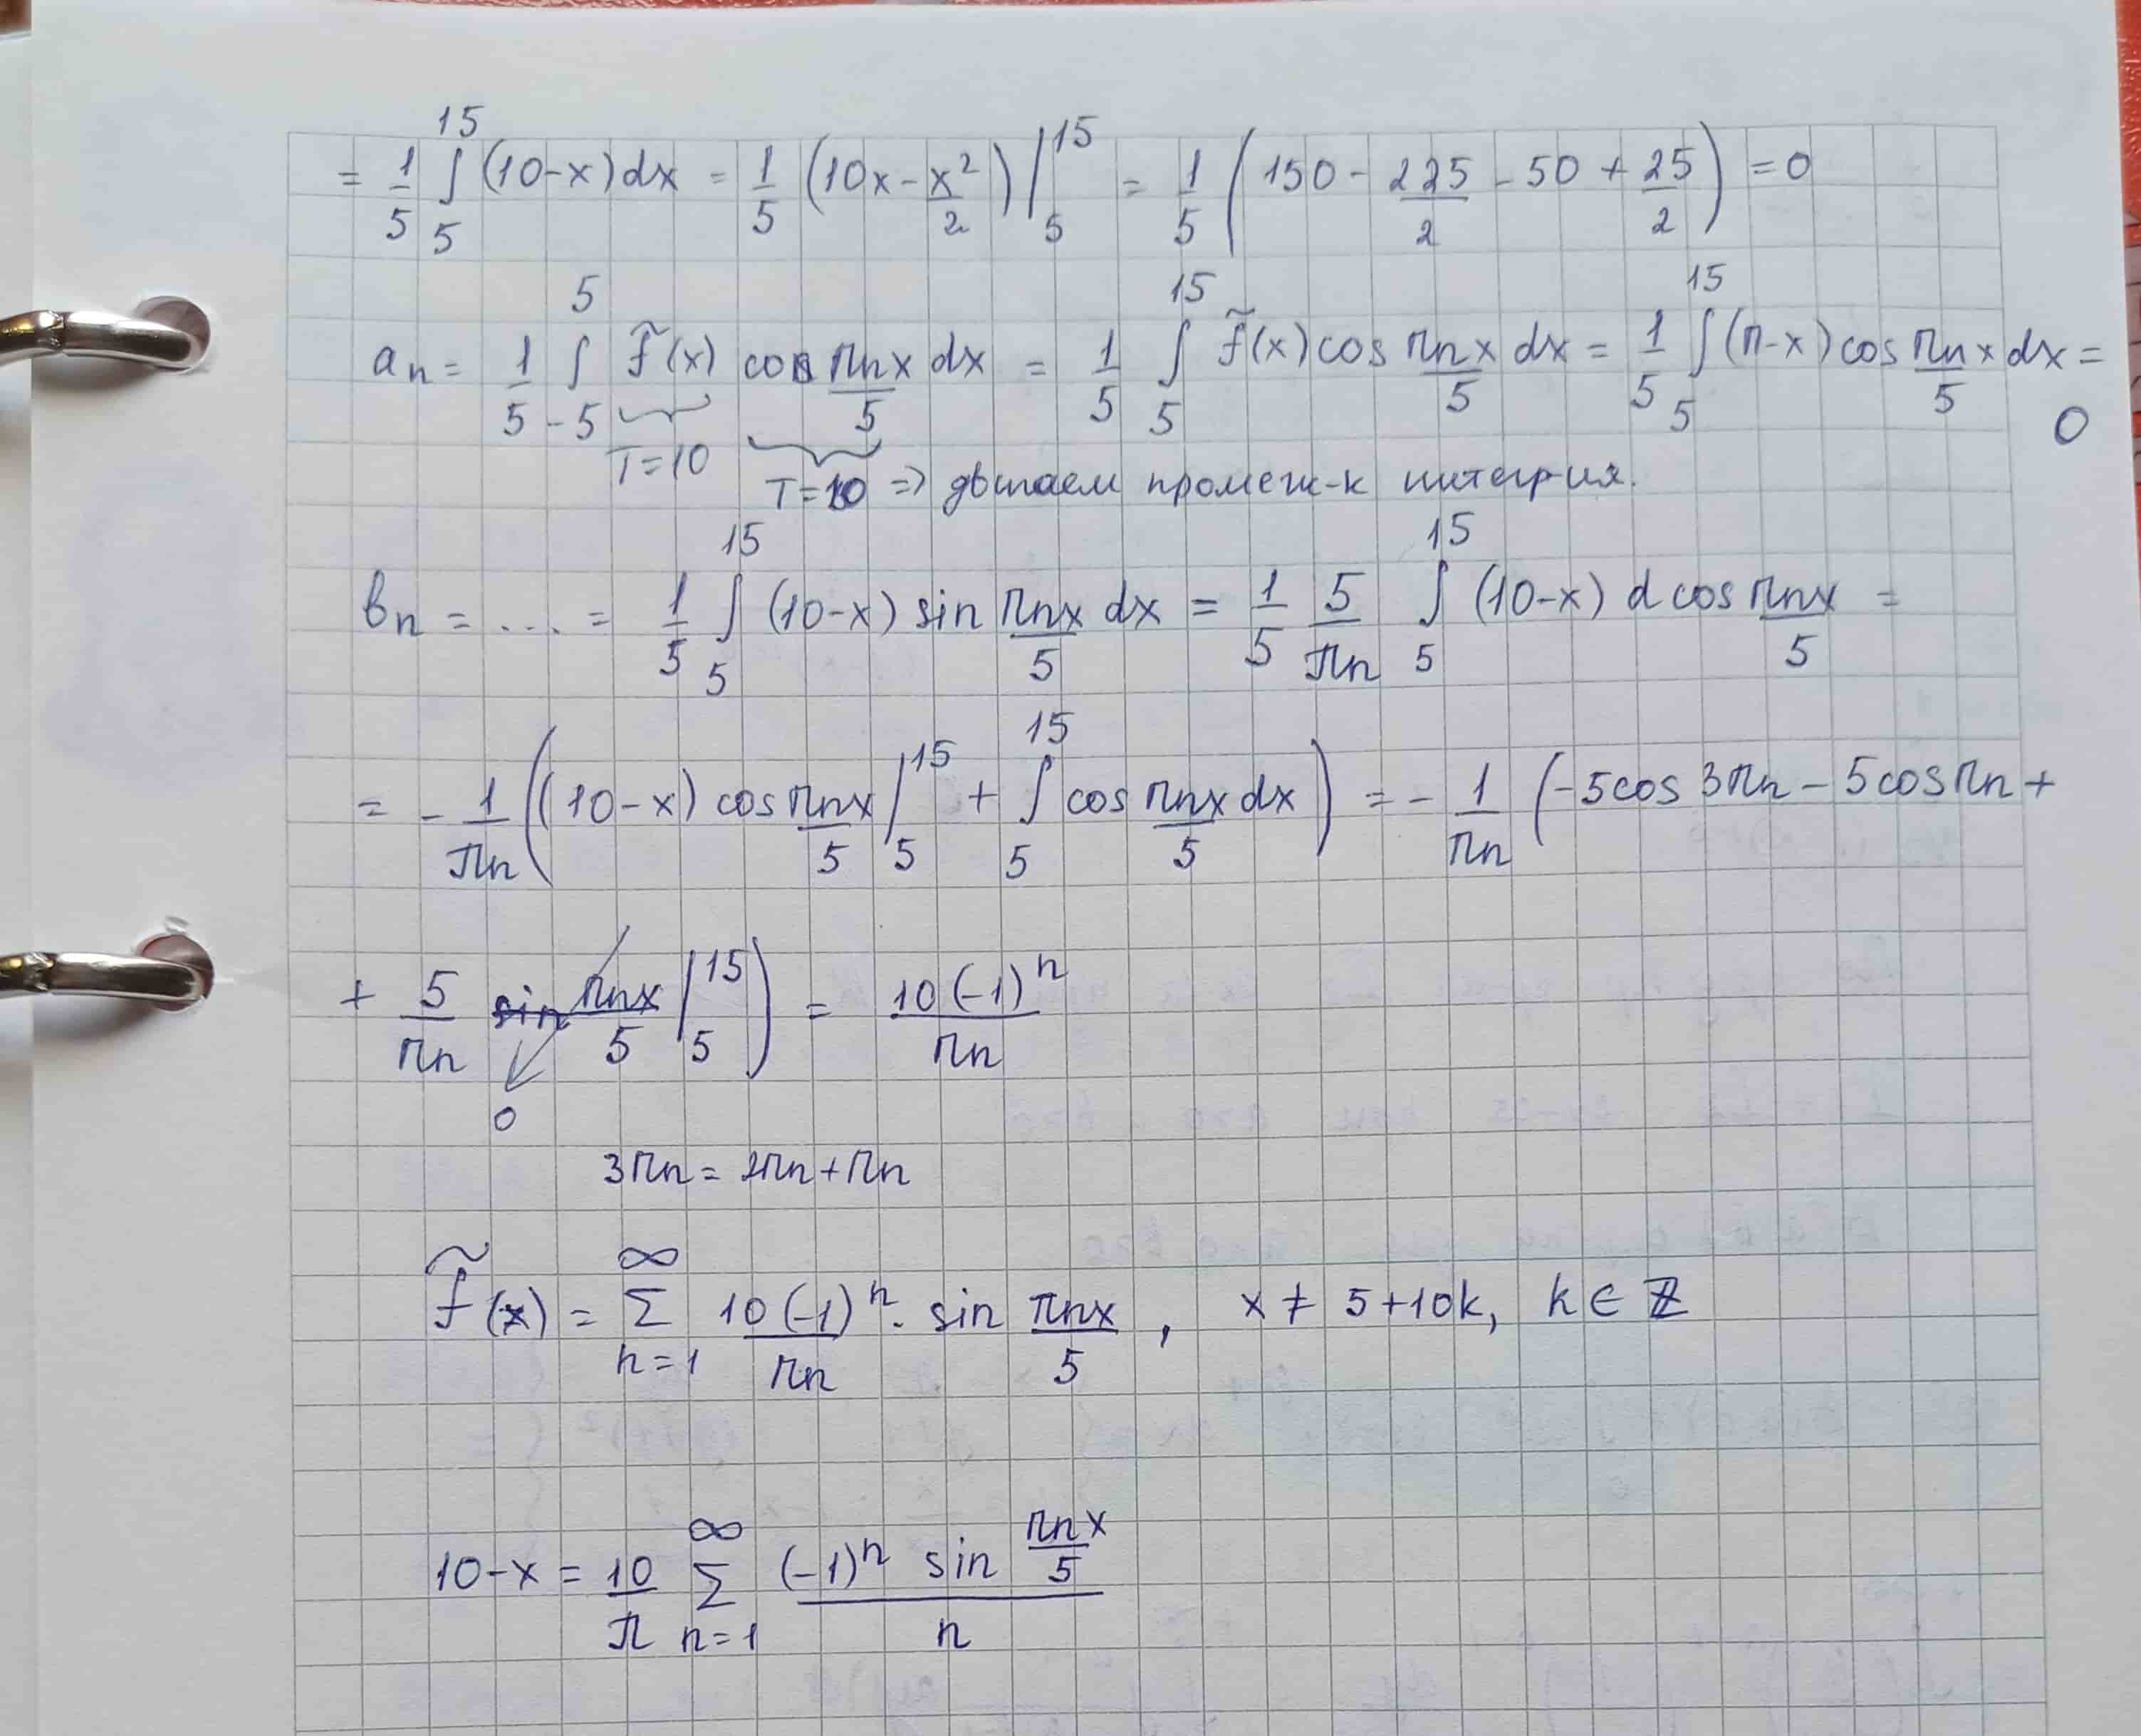 = 1/5 ∫_5^15 (10-x)dx = 1/5 (10x - x²/2) |_5^15 = 1/5 (150 - 225/2 - 50 + 25/2) = 0
a_n = 1/5 ∫_-5^5 f̃(x) cos πnx/5 dx = 1/5 ∫_5^15 f̃(x) cos πn/5 x dx = 1/5 ∫_5^15 (π-x) cos πn/5 x dx = 0
T=10 T=10 => двигаем промеж-к интегр-ия.
b_n = ... = 1/5 ∫_5^15 (10-x) sin πnx/5 dx = 1/5 5/πn ∫_5^15 (10-x) d cos πnx/5 =
= - 1/πn ((10-x) cos πnx/5 |_5^15 + ∫_5^15 cos πnx/5 dx) = - 1/πn (-5cos 3πn - 5cos πn +
+ 5/πn sin πnx/5 |_5^15) = 10(-1)^n/πn
0
3πn = 2πn + πn
f̃(x) = Σ_{n=1}^∞ 10(-1)^n/πn · sin πnx/5 , x ≠ 5+10k, k ∈ ℤ
10-x = 10/π Σ_{n=1}^∞ (-1)^n sin πnx/5 / n